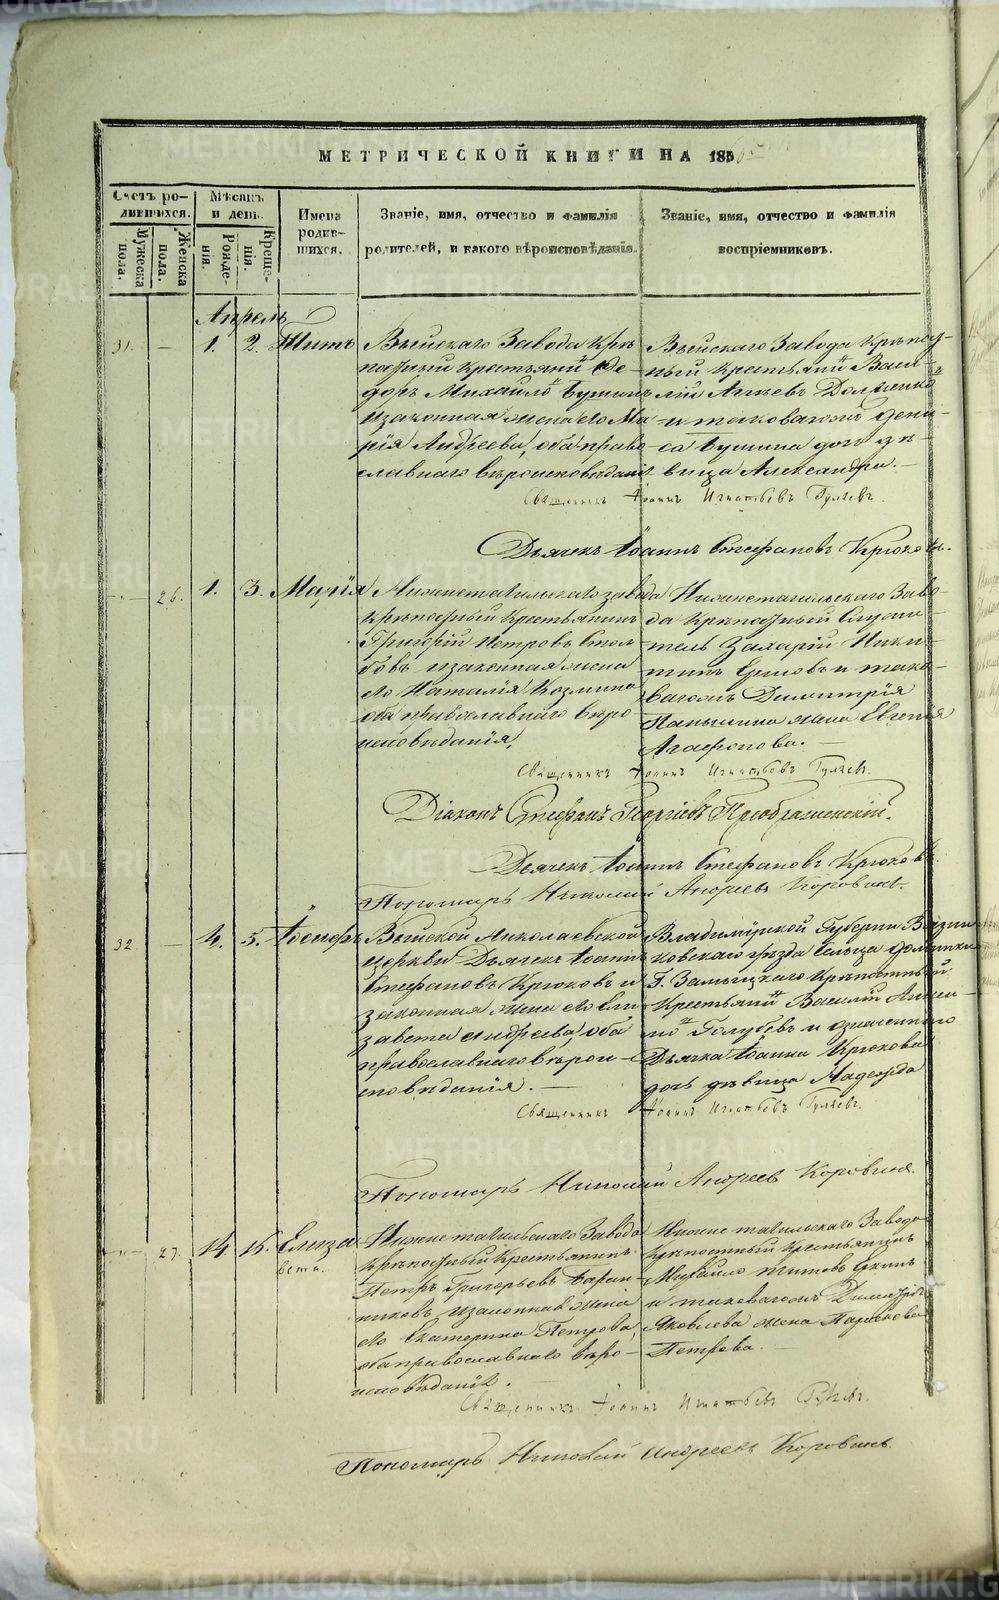 МЕТРИЧЕСКОЙ КНИГИ НА 185
Счетъ ро-
дившихся.
Мужеска
пола.
Женска
пола.
Мѣсяцъ
и день.
Рожде-
нія.
Креще-
нія.
Имена
родив-
шихся.
Званіе, имя, отчество и фамилія
родителей, и какого вѣроисповѣданія.
Званіе, имя, отчество и фамилія
воспріемниковъ.
Апрель
31. — 1. 2. Титъ
Выйскаго Завода Крѣ
постный Крестьянинъ Ѳе-
доръ Михайловъ
и законная жена его Ма
рія Андреева, оба право
славнаго вѣроисповѣданія.
Выйскаго Завода Крѣпост
ный Крестьянинъ Васи-
лій
и таковагожъ Дени
са дочь дѣ-
вица Александра. —
Священникъ Іоаннъ Игнатьевъ Гуляевъ.
Дьячекъ Іоаннъ Стефановъ Крюковъ.
— 26. 1. 3. Марія
Нижнетагильскаго завода
Крѣпостный Крестьянинъ
Григорій Петровъ Стол
бовъ и законная жена
его Наталія Козмина
оба православнаго вѣро
исповѣданія,
Нижнетагильскаго Заво
да Крѣпостный Служи
тель Захарій Ники
тинъ и тако
вагожъ Димитрія
Паньшина жена Евгенія
Агафонова. —
Священникъ Іоаннъ Игнатьевъ Гуляевъ.
Діаконъ Стефанъ Георгіевъ Преображенскій.
Дьячекъ Іоаннъ Стефановъ Крюковъ
Пономарь Николай Андреевъ Коровинъ.
32. — 4. 5. Іосифъ
Выйской Николаевской
церкви Дьячекъ Іоаннъ
Стефановъ Крюковъ и
законная жена его Ели
завета Андреева, оба
православнаго вѣрои-
споведанія. —
Владимірской Губерніи Вязни
ковскаго уѣзда Сельца
Г. Замыцкаго Крѣпостный
Крестьянинъ Василій
Голубевъ и означеннаго
Дьячка Іоанна Крюкова
дочь дѣвица Надежда
Священникъ Іоаннъ Игнатьевъ Гуляевъ.
Пономарь Николай Андреевъ Коровинъ.
— 27. 14 15. Елиза
вета.
Нижнетагильскаго Завода
крѣпостный Крестьянинъ
Петръ Григорьевъ Баран
никовъ и законная жена
его Екатерина Петрова,
оба православнаго вѣро-
исповѣданія. —
Нижнетагильскаго Завода
крѣпостный Крестьянинъ
Михайло Титовъ
и таковагожъ Димитрія
Яковлева жена Параскева
Петрова. —
Священникъ Іоаннъ Игнатьевъ Гуляевъ.
Пономарь Николай Андреевъ Коровинъ.
METRIKI.GASO-URAL.RU